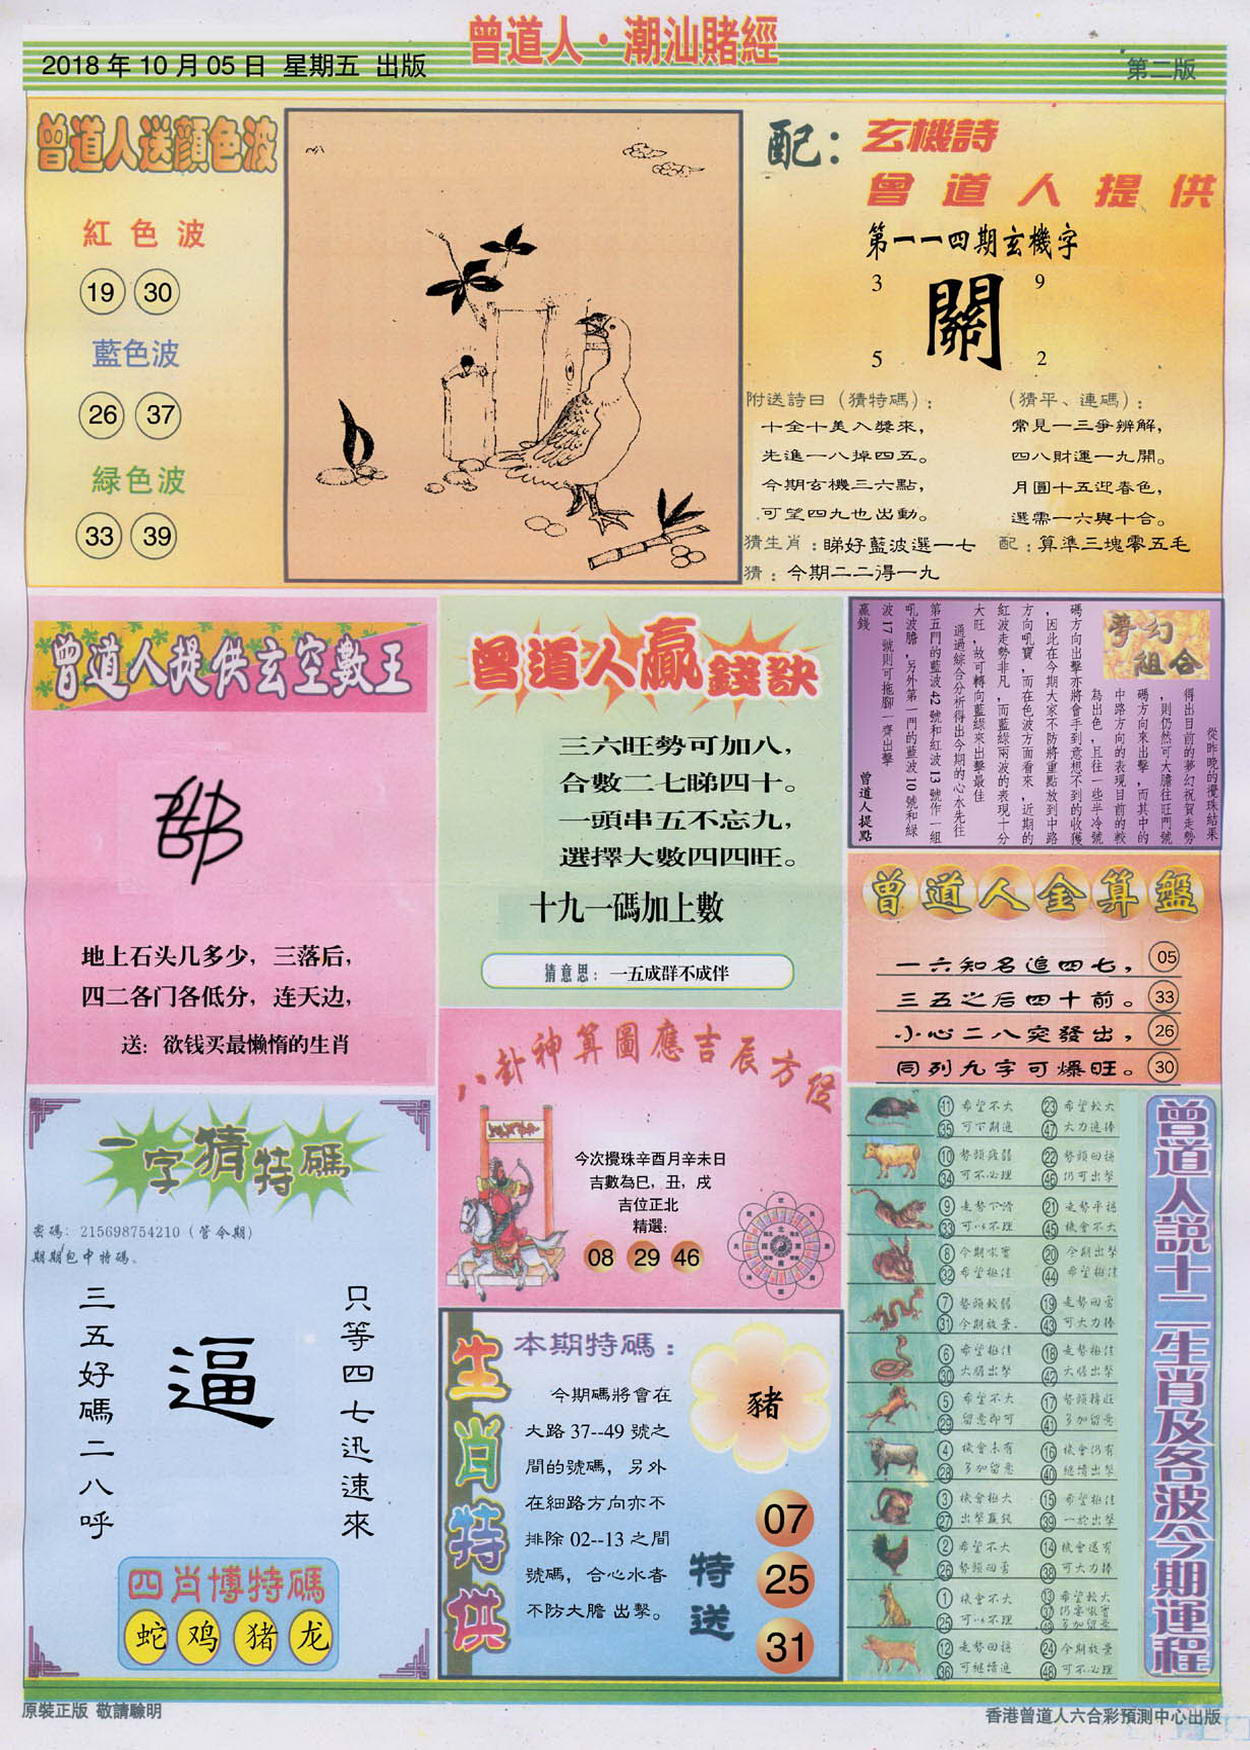 曾道人·潮汕賭經
2018 年 10 月 05 日 星期五 出版
第二版
曾道人送顔色波
紅色波
19 30
藍色波
26 37
緑色波
33 39
配：玄機詩
曾道人提供
第一一四期玄機字
3 9
關
5 2
附送詩曰（猜特碼）：
十全十美入獎來，
先進一八掉四五。
今期玄機三六點，
可望四九也出動。
（猜平、連碼）：
常見一三爭辨解，
四八財運一九開。
月圓十五迎春色，
選需一六與十合。
猜生肖：睇好藍波選一七
配：算準三塊零五毛
猜：今期二二得一九
曾道人提供玄空數王
地上石头几多少，三落后，
四二各门各低分，连天边，
送：欲钱买最懒惰的生肖
曾道人贏錢訣
三六旺勢可加八，
合數二七睇四十。
一頭串五不忘九，
選擇大數四四旺。
十九一碼加上數
猜意思：一五成群不成伴
夢幻組合
從昨晚的攪珠結果
得出目前的夢幻祝賀走勢
，則仍然可大膽往旺門號
碼方向來出擊，而其中的
中路方向的表現目前的較
為出色，且往一些半冷號
碼方向出擊亦將會手到意想不到的收獲
，因此在今期大家不防將重點放到中路
方向吼寶，而在色波方面看來，近期的
紅波走勢非凡，而藍綠兩波的表現十分
大旺，故可轉向藍綠來出擊最佳
通過綜合分析得出今期的心水先往
第五門的藍波42號和紅波13號作一組
吼波膽，另外第一門的藍波10號和綠
波17號則可拖腳一齊出擊
贏錢
曾道人提點
曾道人金算盤
一六知名追四七，05
三五之后四十前。33
小心二八突發出，26
同列九字可爆旺。30
八卦神算圖應吉辰方位
今次攪珠辛酉月辛未日
吉數為巳，丑，戌
吉位正北
精選：
08 29 46
一字猜特碼
密碼：215698754210（管令期）
期期包中特碼。
三五好碼二八呼
逼
只等四七迅速來
四肖博特碼
蛇 鸡 猪 龙
生肖特供
本期特碼：
今期碼將會在
大路 37--49 號之
間的號碼，另外
在細路方向亦不
排除 02--13 之間
號碼，合心水者
不防大膽 出擊。
豬
特送
07
25
31
曾道人説十二生肖及各波今期運程
11 希望不大 23 希望較大
35 可下期進 47 大力進捧
10 勢頭疲弱 22 勢頭回穩
34 可不必理 46 仍可出擊
9 走勢下滑 21 走勢平穩
33 可以不理 45 機會不大
8 今期吼實 20 今期出擊
32 希望極佳 44 希望極佳
7 勢頭較弱 19 走勢回雲
31 今期放棄. 43 可大力捧
6 希望極佳 18 走勢極佳
30 大膽出擊 42 大膽出擊
5 希望不大 17 勢頭轉旺
29 留意即可 41 多加留意
4 機會未有 16 機會仍有
28 多加留意 40 繼續出擊
3 機會極大 15 希望極佳
27 出擊贏錢 39 一於出擊
2 希望不大 14 機會還有
26 勢頭回雲 38 可大力捧
1 機會不大 13 希望較大
25 可以不理 37 仍要吼實
49 多加留意
12 走勢回穩 24 今期放棄
36 可繼續進 48 可不必理
原裝正版 敬請驗明
香港曾道人六合彩預測中心出版